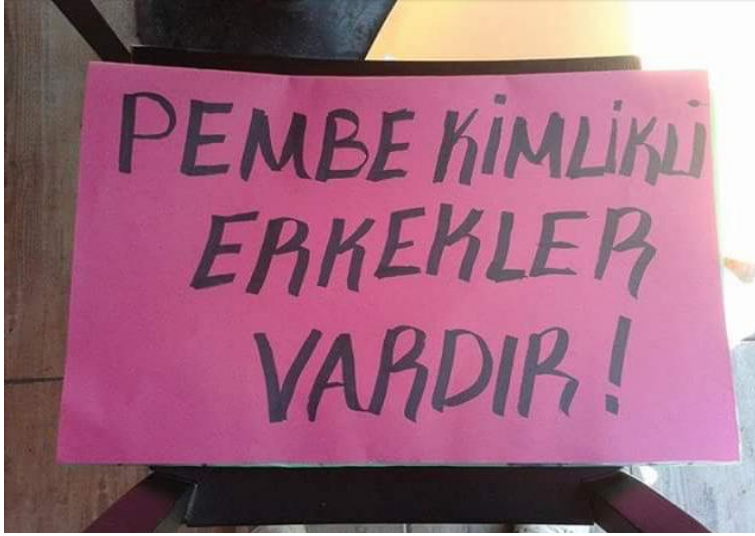 PEMBE KİMLİKLİ
ERKEKLER
VARDIR!